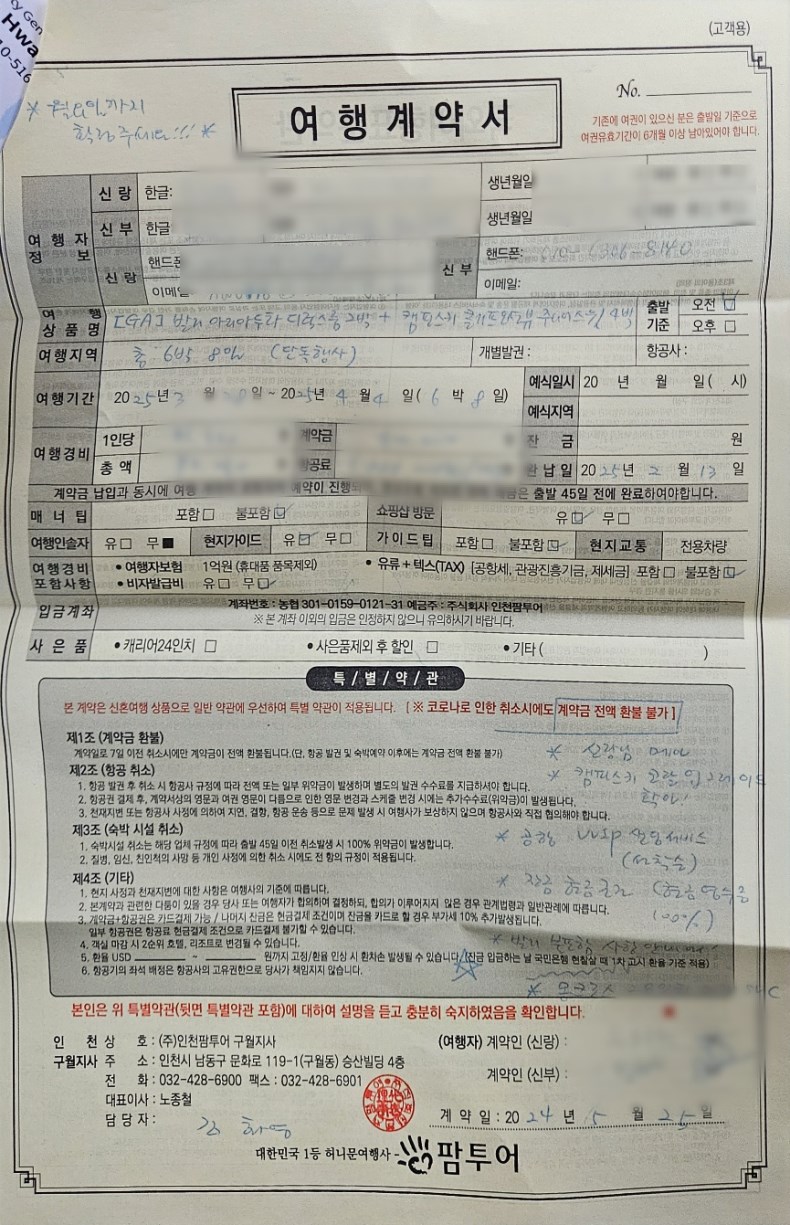 (고객용)
Hwa
10-516
* 월요일까지
확정주세요!!! *
여행계약서
No.
기존에 여권이 있으신 분은 출발일 기준으로
여권유효기간이 6개월 이상 남아있어야 합니다.
여행자 정보
신랑 한글: 생년월일
신부 한글 생년월일
신랑 핸드폰 신부 핸드폰:
이메일 이메일:
여행 상품명 [GA] 발리 2박 + 4박 출발 기준 오전 ☑ 오후 □
여행지역 총 6박 8일 (단독행사) 개별발권: 항공사:
여행기간 2025년 3월 일 ~ 2025년 4월 4일 (6박 8일) 예식일시 20 년 월 일( 시)
예식지역
여행경비 1인당 계약금 잔금 원
총액 항공료 완납일 2025년 2월 13일
계약금 납입과 동시에 여행 예약이 진행 은 출발 45일 전에 완료하여야합니다.
매너팁 포함 □ 불포함 ☑ 쇼핑샵 방문 유 ☑ 무 □
여행인솔자 유 □ 무 ■ 현지가이드 유 ☑ 무 □ 가이드팁 포함 □ 불포함 ☑ 현지교통 전용차량
여행경비 포함사항 • 여행자보험 1억원 (휴대품 품목제외) • 유류+텍스(TAX) [공항세, 관광진흥기금, 제세금] 포함 □ 불포함 ☑
• 비자발급비 유 □ 무 ☑
입금계좌 계좌번호 : 농협 301-0159-0121-31 예금주 : 주식회사 인천팜투어
※ 본 계좌 이외의 입금은 인정하지 않으니 유의하시기 바랍니다.
사은품 • 캐리어24인치 □ • 사은품제외 후 할인 □ • 기타 ( )
특/별/약/관
본 계약은 신혼여행 상품으로 일반 약관에 우선하여 특별 약관이 적용됩니다. [ ※ 코로나로 인한 취소시에도 계약금 전액 환불 불가 ]
제1조 (계약금 환불)
계약일로 7일 이전 취소시에만 계약금이 전액 환불됩니다.(단, 항공 발권 및 숙박예약 이후에는 계약금 전액 환불 불가)
* 신랑님 메아
제2조 (항공 취소)
* 캠핀스키
1. 항공 발권 후 취소 시 항공사 규정에 따라 전액 또는 일부 위약금이 발생하며 별도의 발권 수수료를 지급하셔야 합니다.
2. 항공권 결제 후, 계약서상의 영문과 여권 영문이 다름으로 인한 영문 변경과 스케줄 변경 시에는 추가수수료(위약금)이 발생됩니다.
3. 천재지변 또는 항공사 사정에 의하여 지연, 결항, 항공 운송 등으로 문제 발생 시 여행사가 보상하지 않으며 항공사와 직접 협의해야 합니다.
제3조 (숙박 시설 취소)
* 공항 VVip 전담서비스
(선착순)
1. 숙박시설 취소는 해당 업체 규정에 따라 출발 45일 이전 취소발생 시 100% 위약금이 발생합니다.
2. 질병, 임신, 친인척의 사망 등 개인 사정에 의한 취소 시에도 전 항의 규정이 적용됩니다.
제4조 (기타)
* 잔금 현금결제 (현금영수증
100%)
1. 현지 사정과 천재지변에 대한 사항은 여행사의 기준에 따릅니다.
2. 본계약과 관련한 다툼이 있을 경우 당사 또는 여행자가 합의하여 결정하되, 합의가 이루어지지 않은 경우 관계법령과 일반관례에 따릅니다.
3. 계약금+항공권은 카드결제 가능 / 나머지 잔금은 현금결제 조건이며 잔금을 카드로 할 경우 부가세 10% 추가발생됩니다.
일부 항공권은 항공료 현금결제 조건으로 카드결제 불가할 수 있습니다.
4. 객실 마감 시 2순위 호텔, 리조트로 변경될 수 있습니다.
* 발리 불포함 사항 안내
5. 환율 USD ~ 원까지 고정/환율 인상 시 환차손 발생될 수 있습니다. (잔금 입금하는 날 국민은행 현찰살 때 1차 고시 환율 기준 적용)
6. 항공기의 좌석 배정은 항공사의 고유권한으로 당사가 책임지지 않습니다.
본인은 위 특별약관(뒷면 특별약관 포함)에 대하여 설명을 듣고 충분히 숙지하였음을 확인합니다.
인천 구월지사
상호 : (주)인천팜투어 구월지사
주소 : 인천시 남동구 문화로 119-1(구월동) 승산빌딩 4층
전화 : 032-428-6900 팩스 : 032-428-6901
대표이사 : 노종철
담당자 : 김화영
(여행자) 계약인 (신랑) :
계약인 (신부) :
계약일 : 2024년 5월 25일
대한민국 1등 허니문여행사 - 팜투어